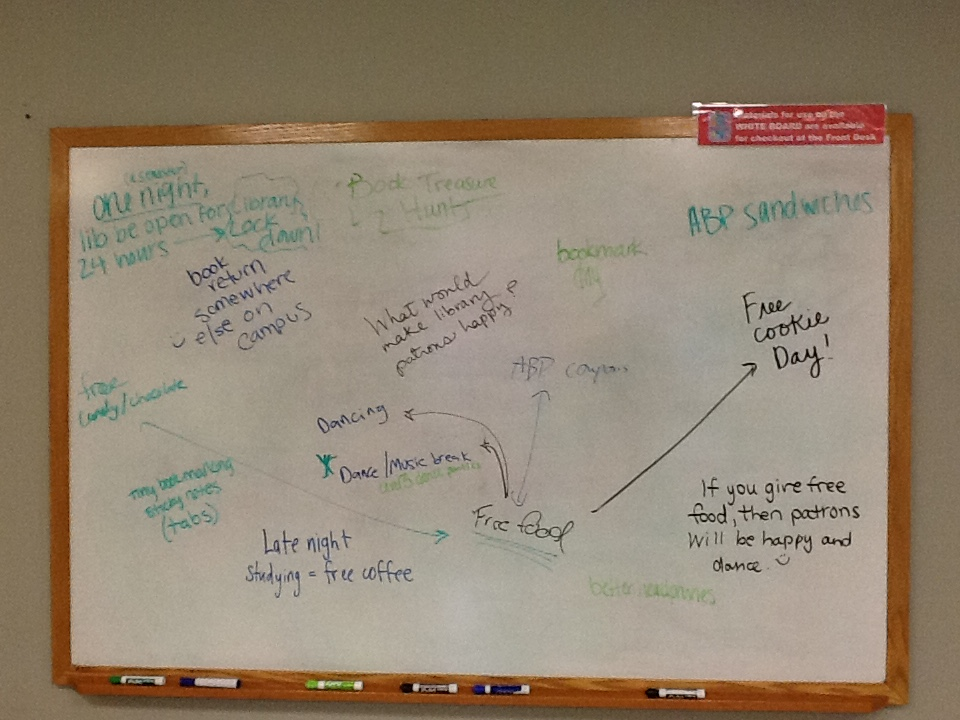 Materials for use of the
WHITE BOARD are available
for checkout at the Front Desk
(1 semester)
one night,
lib be open for
24 hours
Library
Lock
down!
Book Treasure
Hunts
ABP sandwiches
book
return
somewhere
else on
campus
bookmark
DIY
What would
make library
patrons happy?
Free
cookie
Day!
free
candy/chocolate
ABP coupons
Dancing
Dance/Music break
Tiny bookmarking
sticky notes
(tabs)
Free food
If you give free
food, then patrons
will be happy and
dance.
Late night
studying = free coffee
better headphones